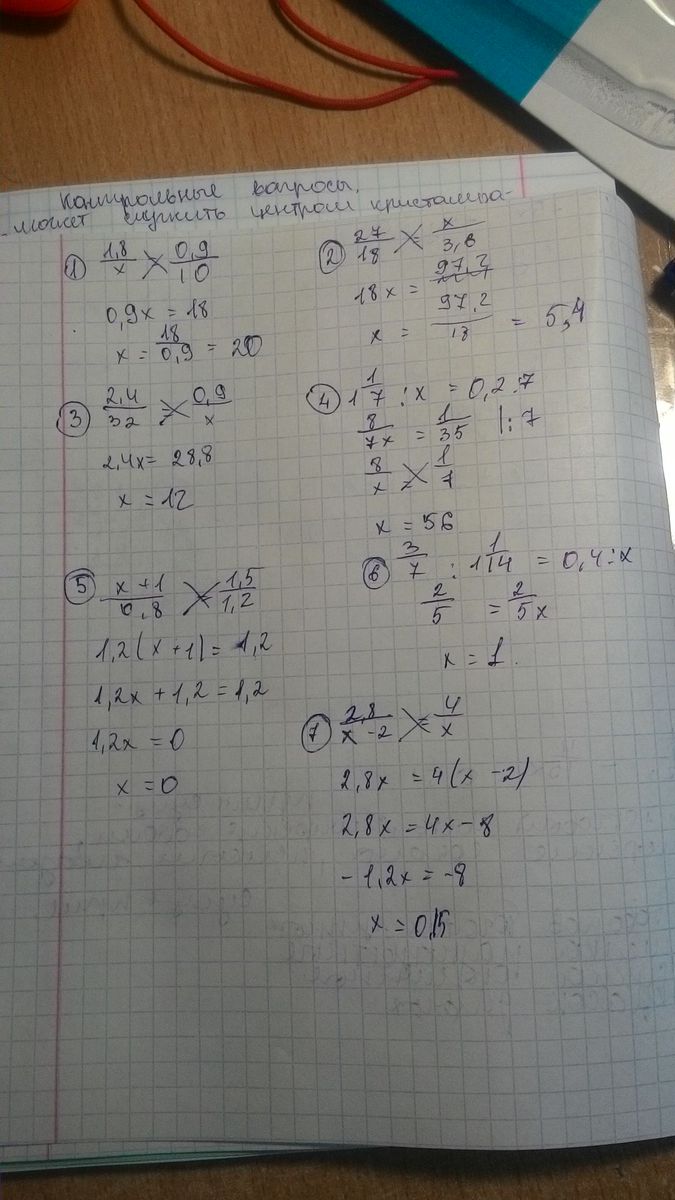 Контрольные вопросы.
может служить центром кристализа-
① 1,8/x = 0,9/10
0,9x = 18
x = 18/0,9 = 20
② 27/18 = x/3,6
18x = 97,2
x = 97,2/18 = 5,4
③ 2,4/32 = 0,9/x
2,4x = 28,8
x = 12
④ 1 1/7 : x = 0,2 : 7
8/7x = 1/35 |: 7
8/x = 1/7
x = 56
⑤ x+1/0,8 = 1,5/1,2
1,2(x+1) = 1,2
1,2x + 1,2 = 1,2
1,2x = 0
x = 0
⑥ 3/7 : 1 1/14 = 0,4 : x
2/5 = 2/5x
x = 1.
⑦ 2,8/x-2 = 4/x
2,8x = 4(x-2)
2,8x = 4x - 8
-1,2x = -8
x = 0,15